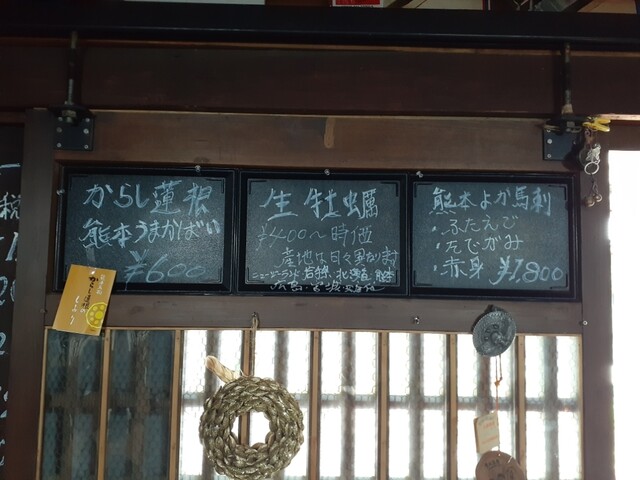 からし蓮根
熊本うまかばい
¥600
生牡蠣
¥400〜時価
産地は日々異なります
ニュージーランド 若狭、北海道 熊本
熊本よか馬刺
・ふたえご
・たてがみ
・赤身 ¥1,800
からし蓮根